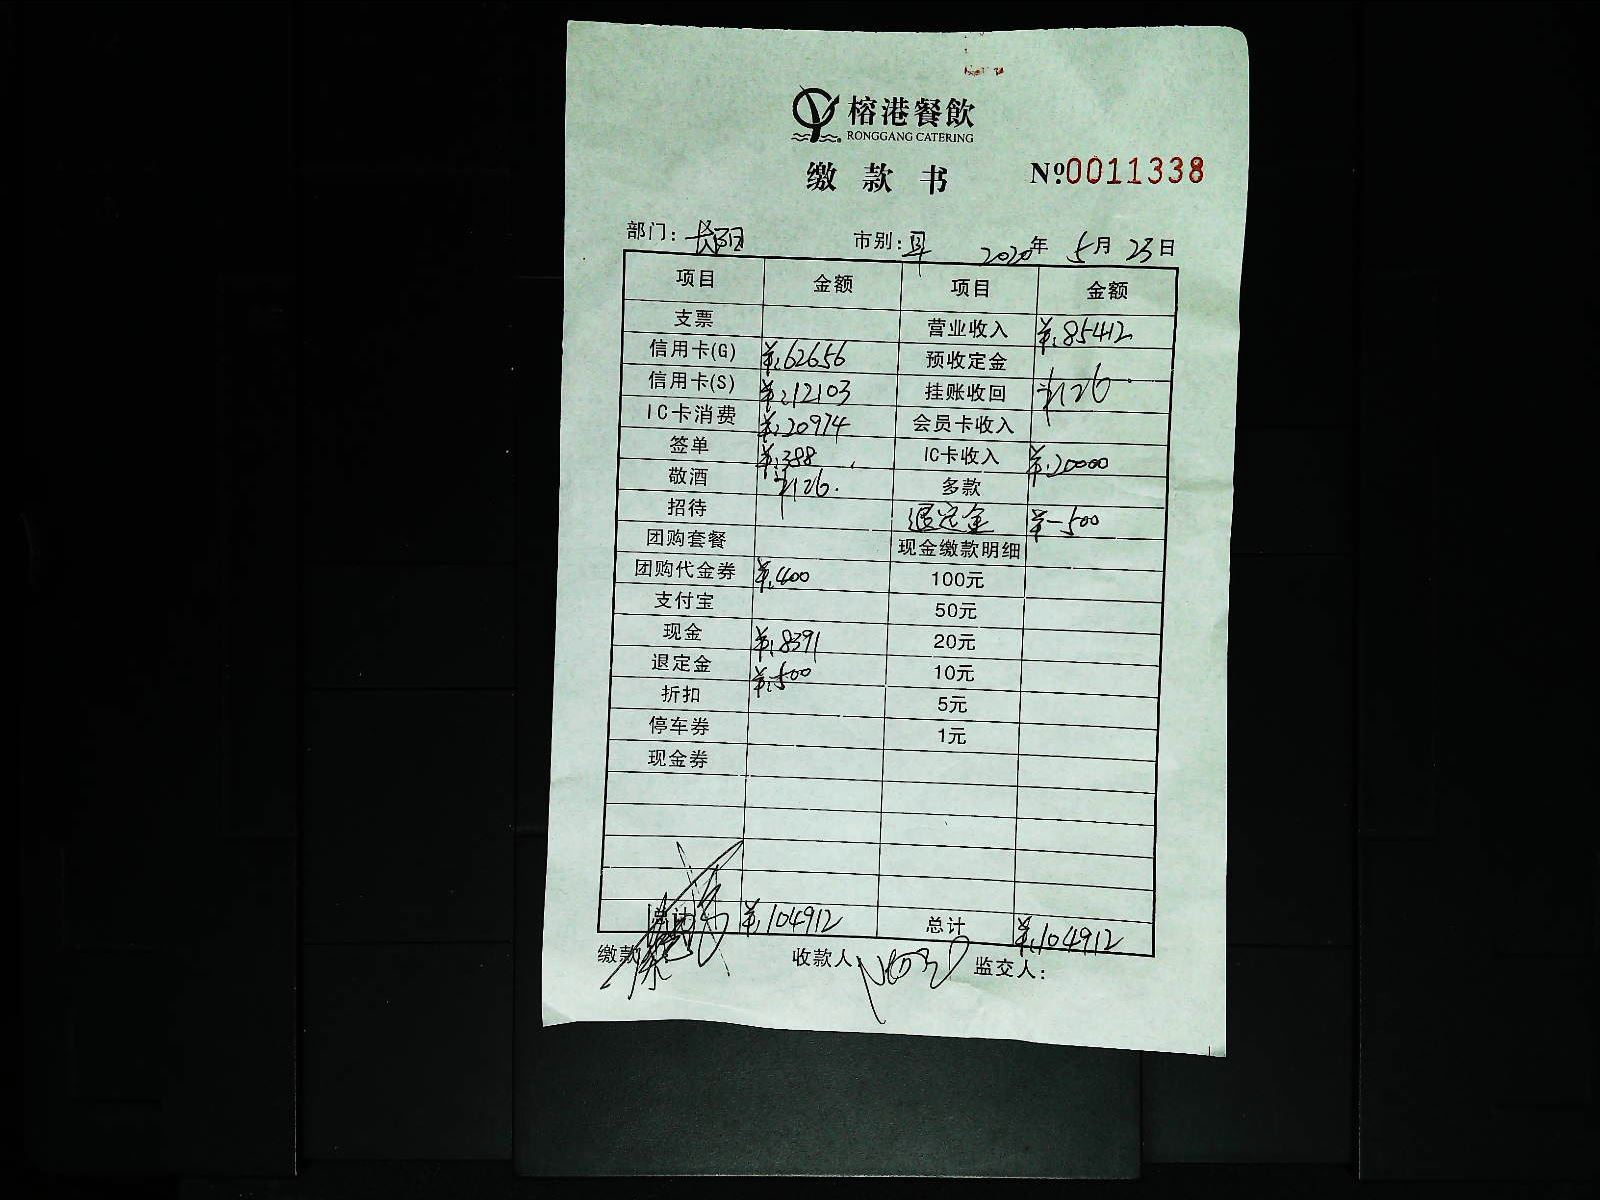 榕港餐飲
RONGGANG CATERING
缴款书 №0011338
部门：长阳 市别：早 2020年 5月 23日
项目 金额 项目 金额
支票 营业收入 ¥:85412
信用卡(G) ¥:62656 预收定金
信用卡(S) ¥:12103 挂账收回 ¥126
IC卡消费 ¥:20974 会员卡收入
签单 ¥:388 IC卡收入 ¥:20000
敬酒 ¥126. 多款
招待 退定金 ¥-500
团购套餐 现金缴款明细
团购代金券 ¥:400 100元
支付宝 50元
现金 ¥:8391 20元
退定金 ¥:500 10元
折扣 5元
停车券 1元
现金券
总计 ¥:104912 总计 ¥:104912
缴款 收款人 监交人：